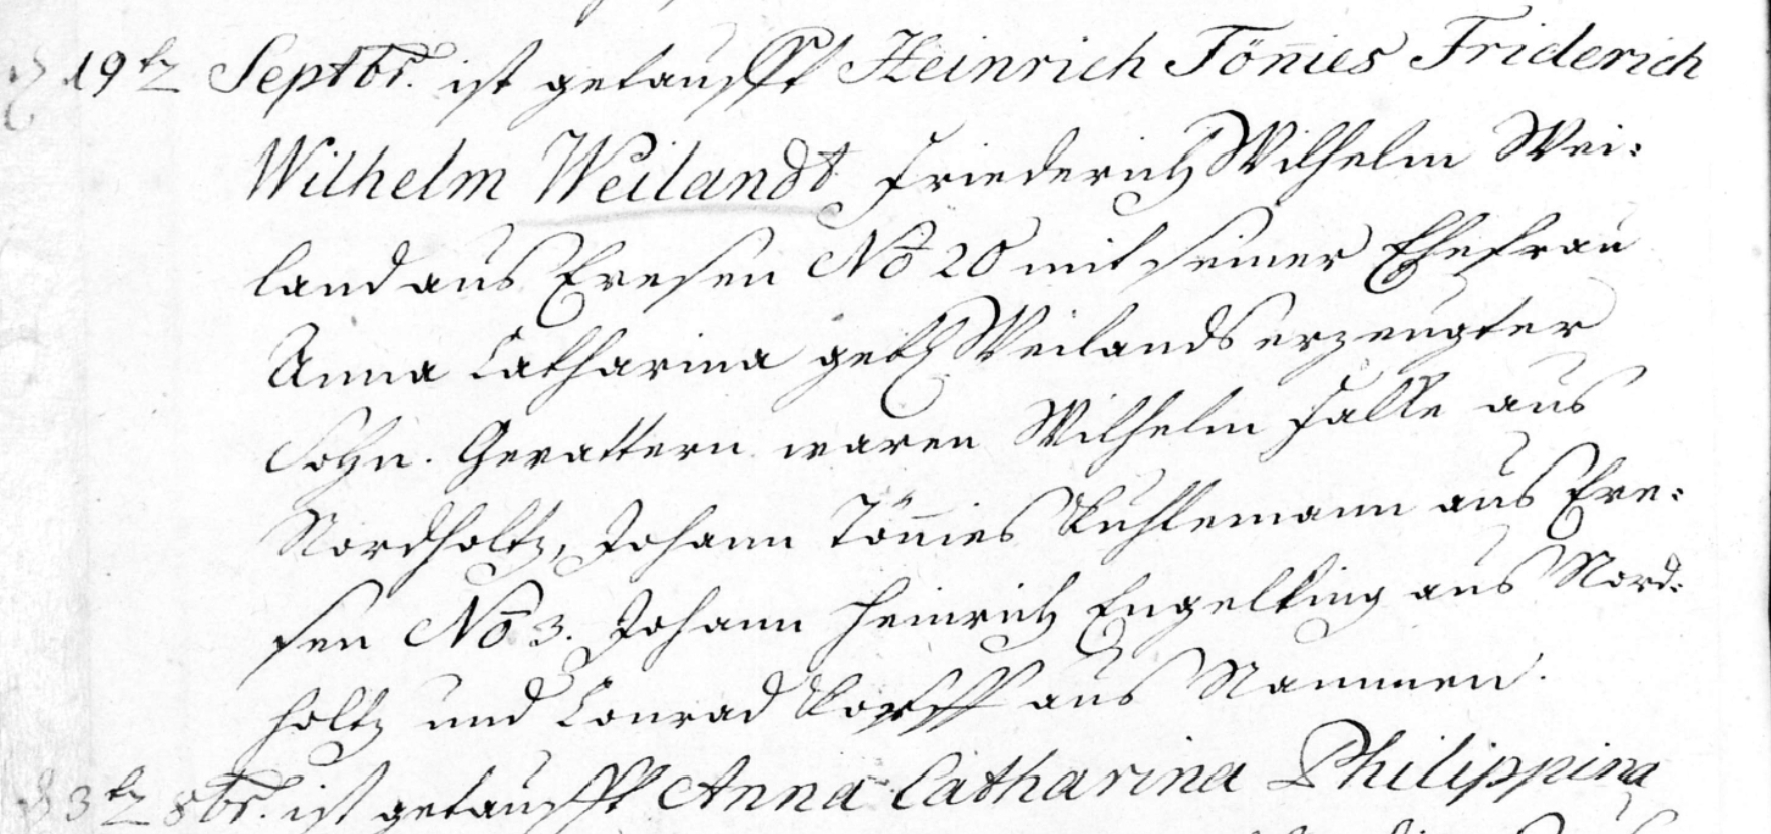 d 19ten Septbr. ist getaufft Heinrich Tönnies Friderich
Wilhelm Weilandt, Friederich Wilhelm Wei:
land aus Evesen No 20 mit seiner Ehefrau
Anna Catharina geb. Weilands erzeugter
Sohn. Gevattern waren Wilhelm Falke aus
Nordholtz, Johann Tönnies Kuhlemann aus Eve:
sen No 3. Johann Heinrich Engelking aus Nord:
holtz und Conrad Korff aus Nammen.
d 3ten 8br. ist getaufft Anna Catharina Philippina